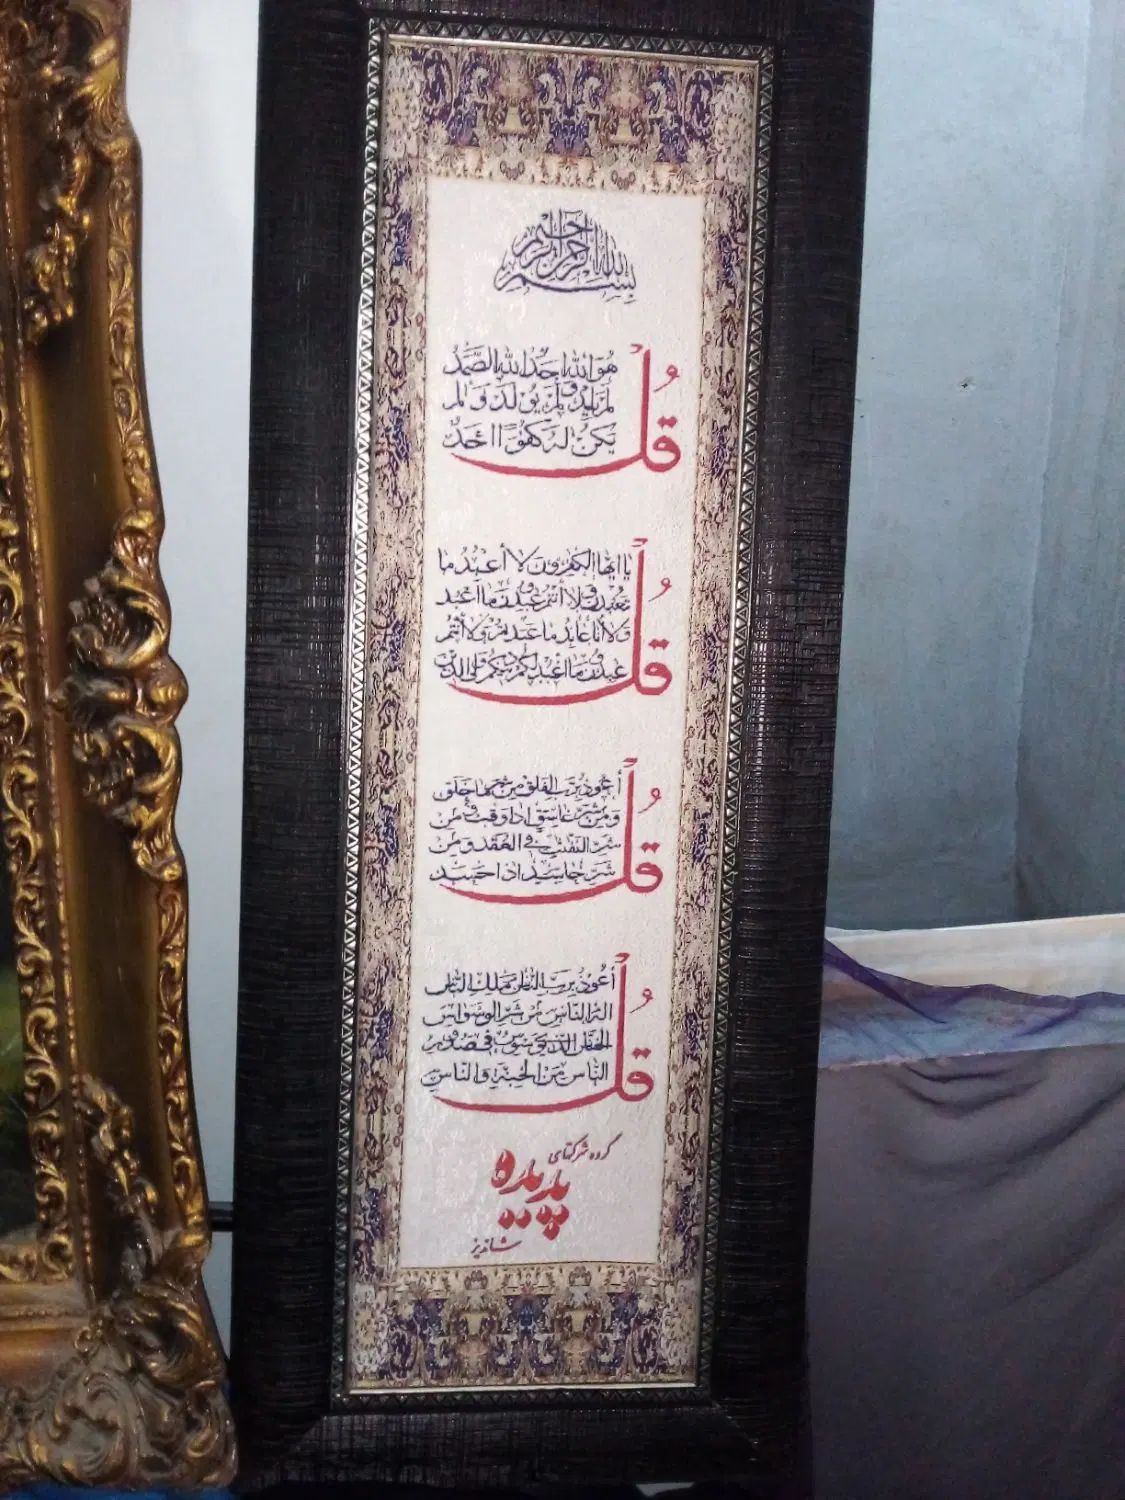 بسم الله الرحمن الرحيم
قُلْ
هُوَ اللهُ اَحَدٌ اللهُ الصَّمَدُ
لَمْ يَلِدْ وَلَمْ يُولَدْ وَ لَمْ
يَكُنْ لَهُ كُفُوًا اَحَدٌ
قُلْ
يا ايها الكفرون لا أعبد ما
تعبدون ولا أنتم عبدون ما اعبد
ولا أنا عابد ما عبدتم ولا أنتم
عبدون ما اعبد لكم دينكم ولى الدين
قُلْ
أعوذ برب الفلق من شر ما خلق
ومن شر غاسق اذا وقب و من
شر النفثت في العقد و من
شر حاسد اذا حسد
قُلْ
أعوذ برب الناس ملك الناس
اله الناس من شر الوسواس
الخناس الذى يوسوس في صدور
الناس من الجنة والناس
گروه شرکتهای
پدیده
شاندیز